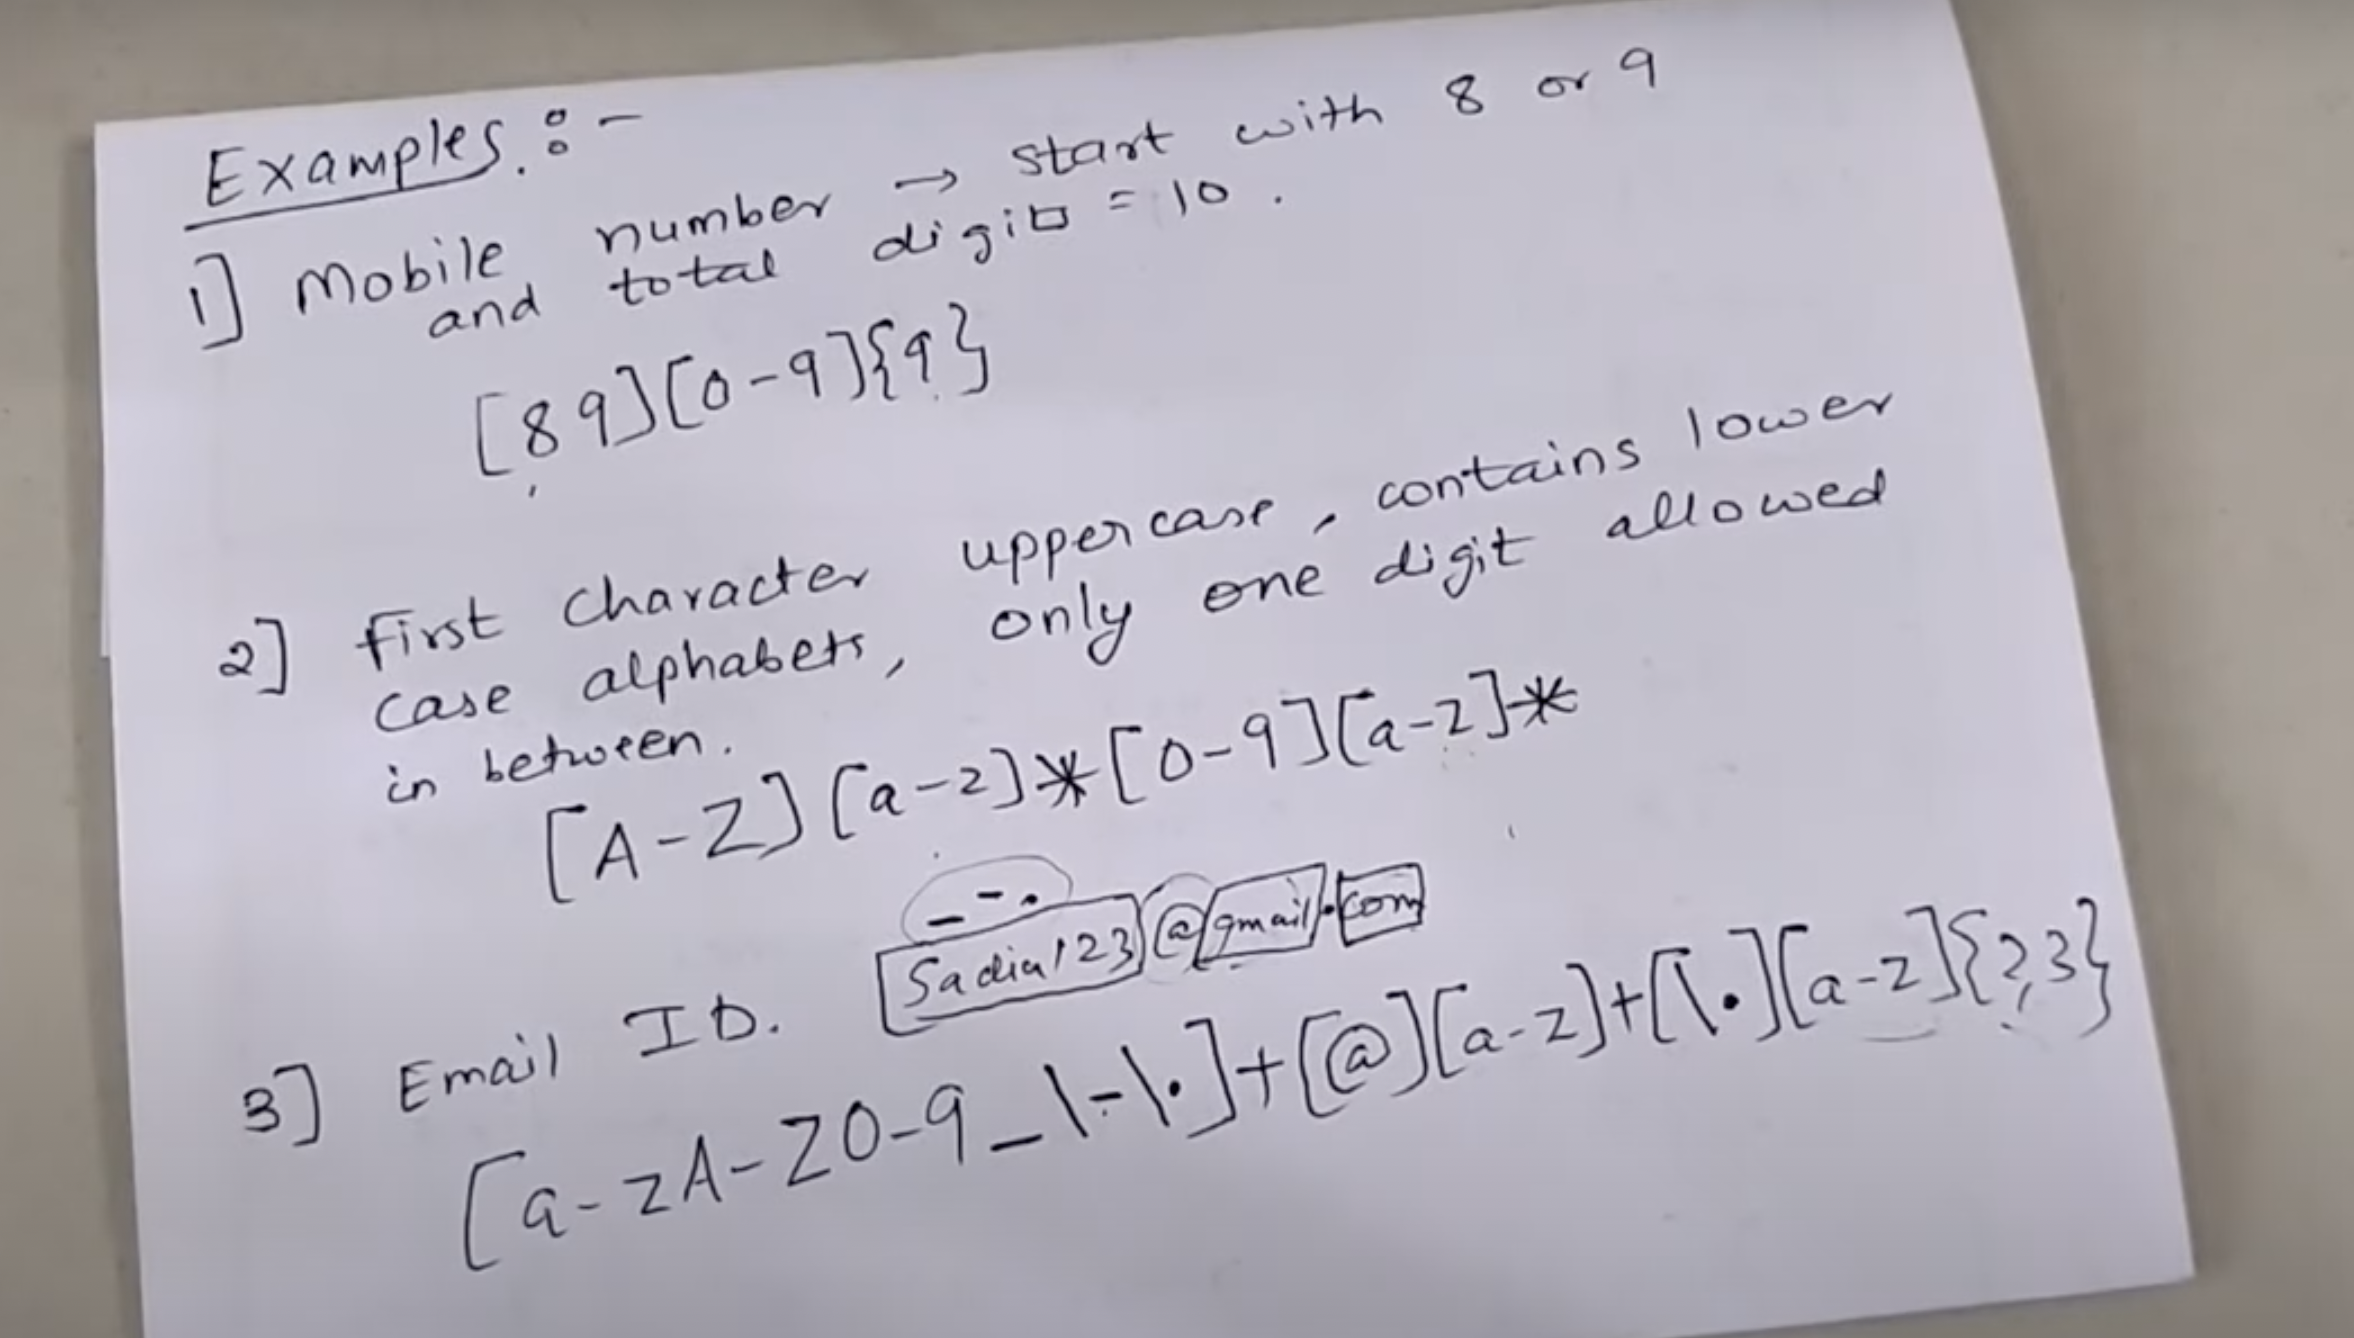 Examples. :-
1] Mobile number → start with 8 or 9
and total digits = 10.
[89][0-9]{9}
2] first character uppercase, contains lower
case alphabets, only one digit allowed
in between.
[A-Z][a-z]*[0-9][a-z]*
_ - .
3] Email ID. Sadia123@gmail.com
[a-zA-Z0-9_\-\.]+[@][a-z]+[\.][a-z]{2,3}